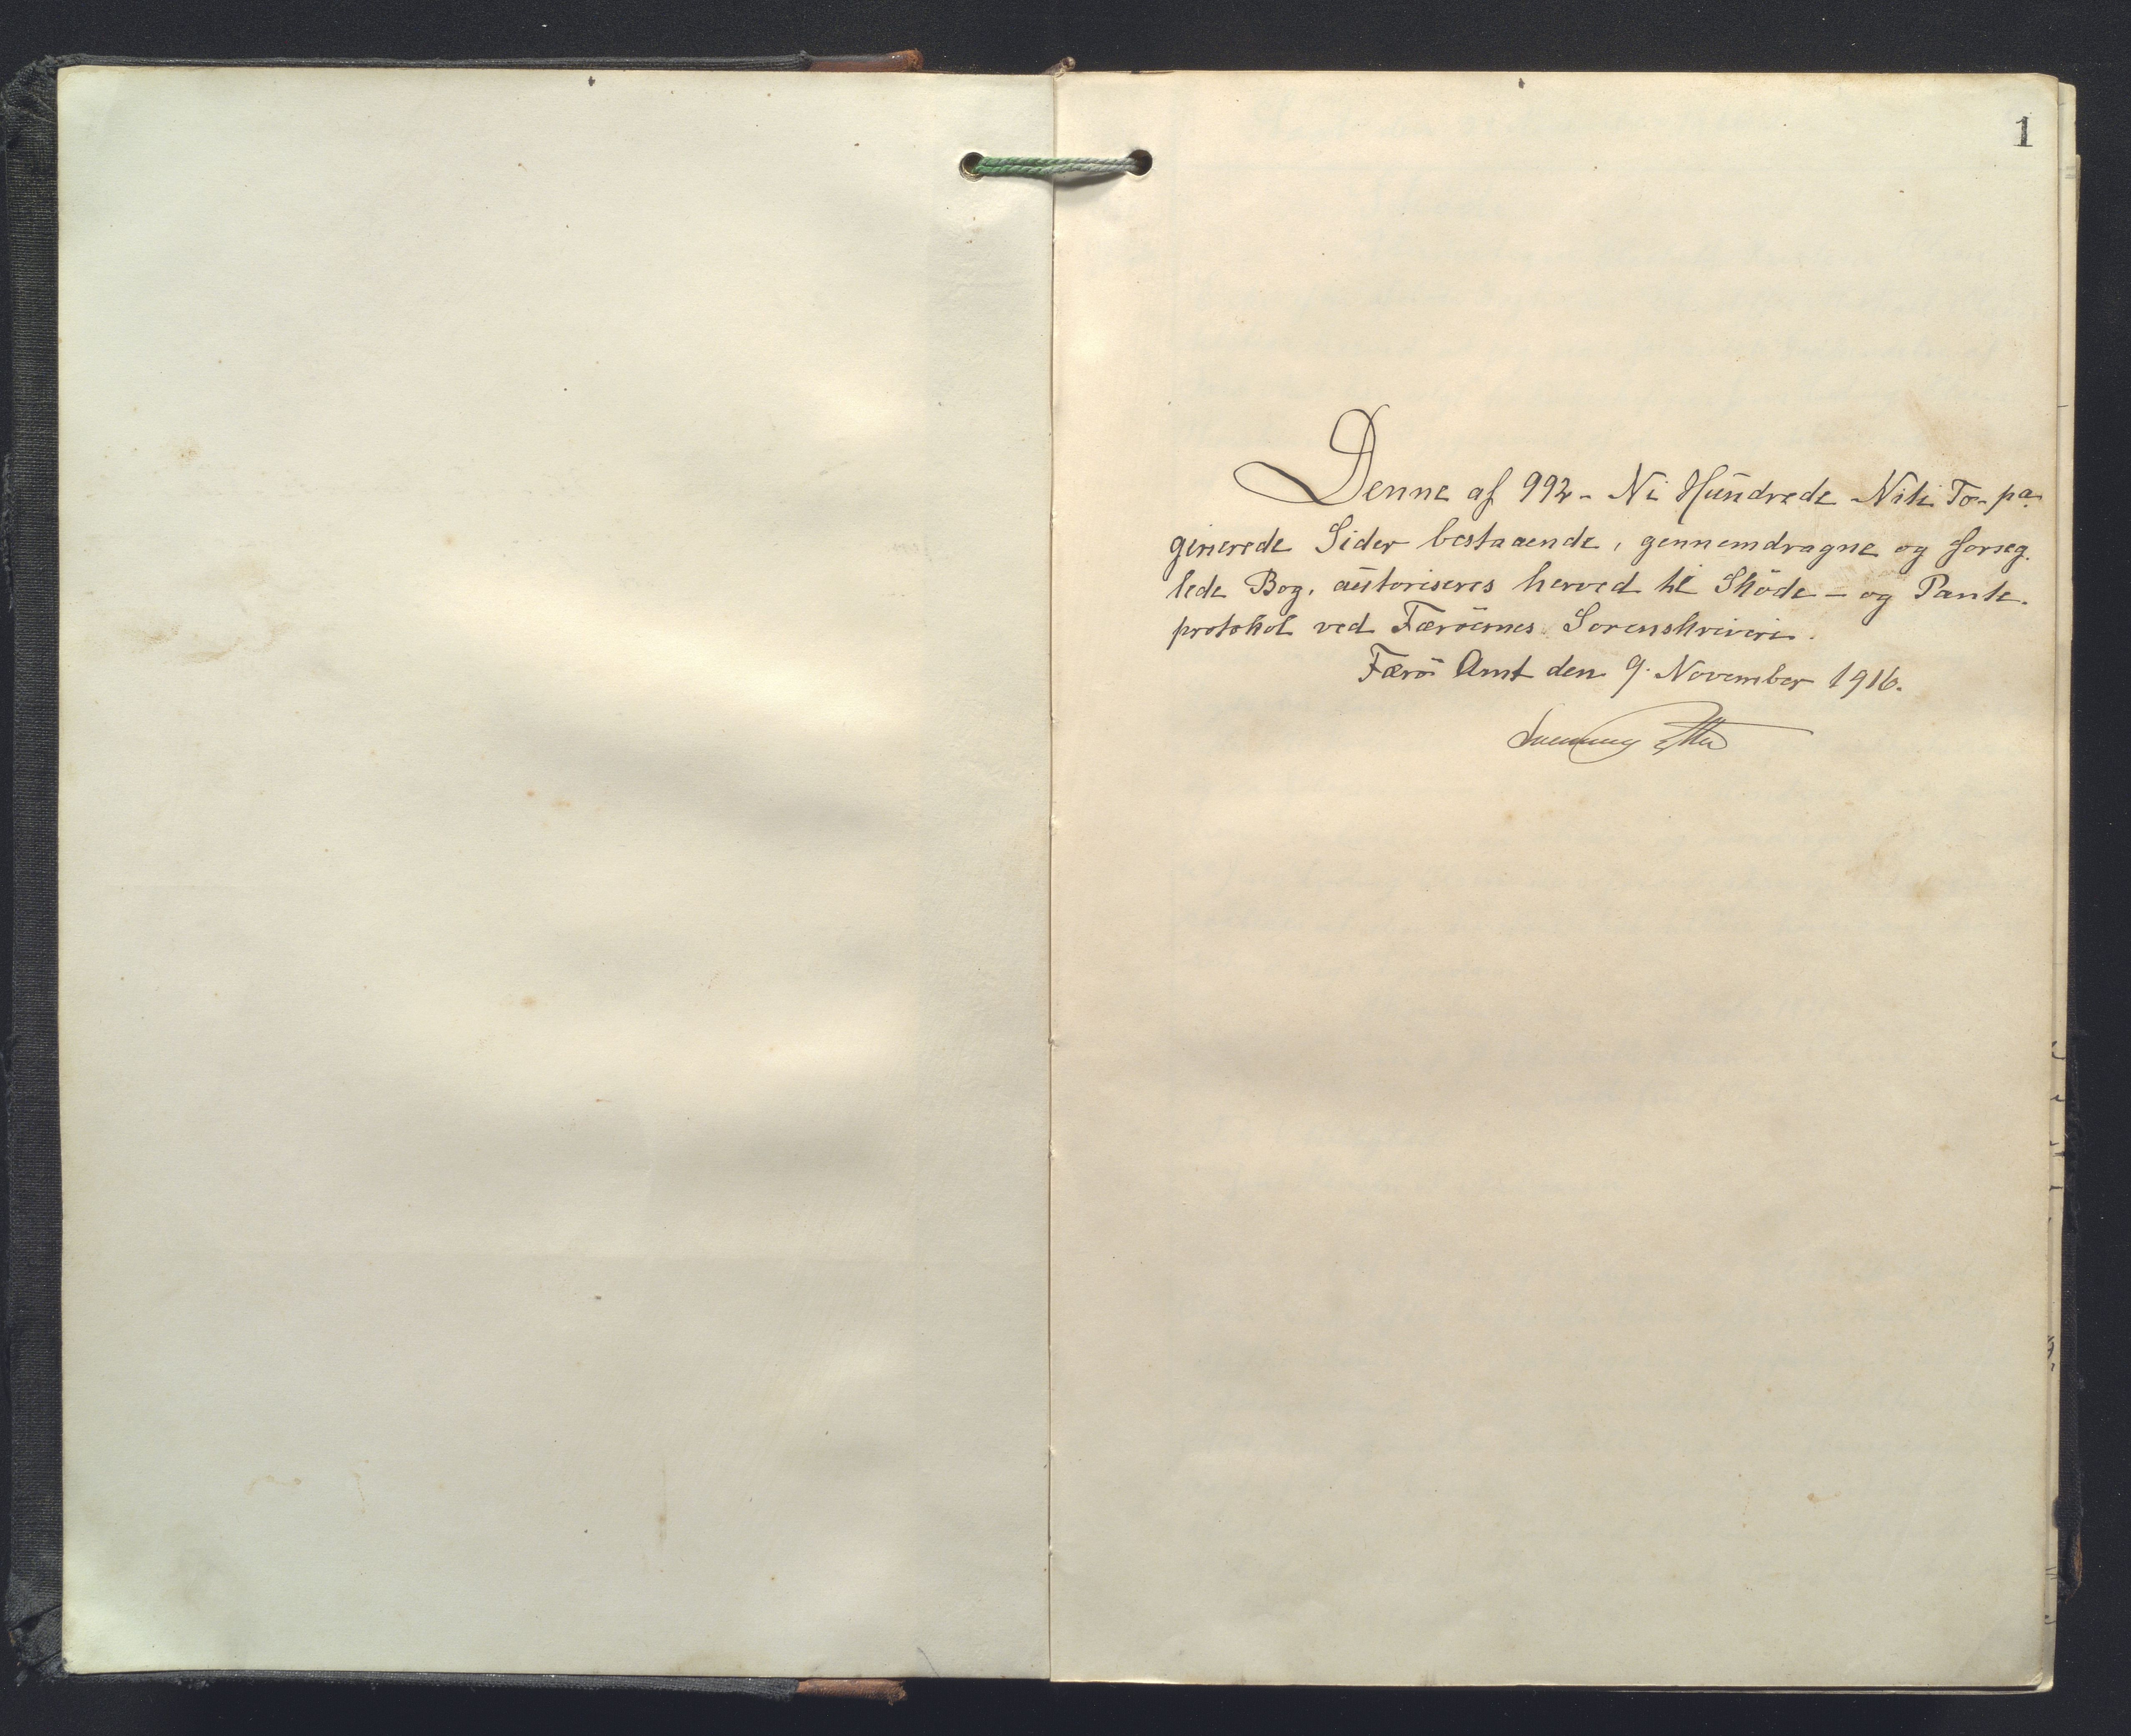 1
Denne af 992 - Ni Hundrede Niti To - pa-
ginerede Sider bestaaende, gennemdragne og forseg-
lede Bog, autoriseres herved til Sköde - og Pante-
protokol ved Færöernes Sorenskriveri.
Færö Amt den 9. November 1916.